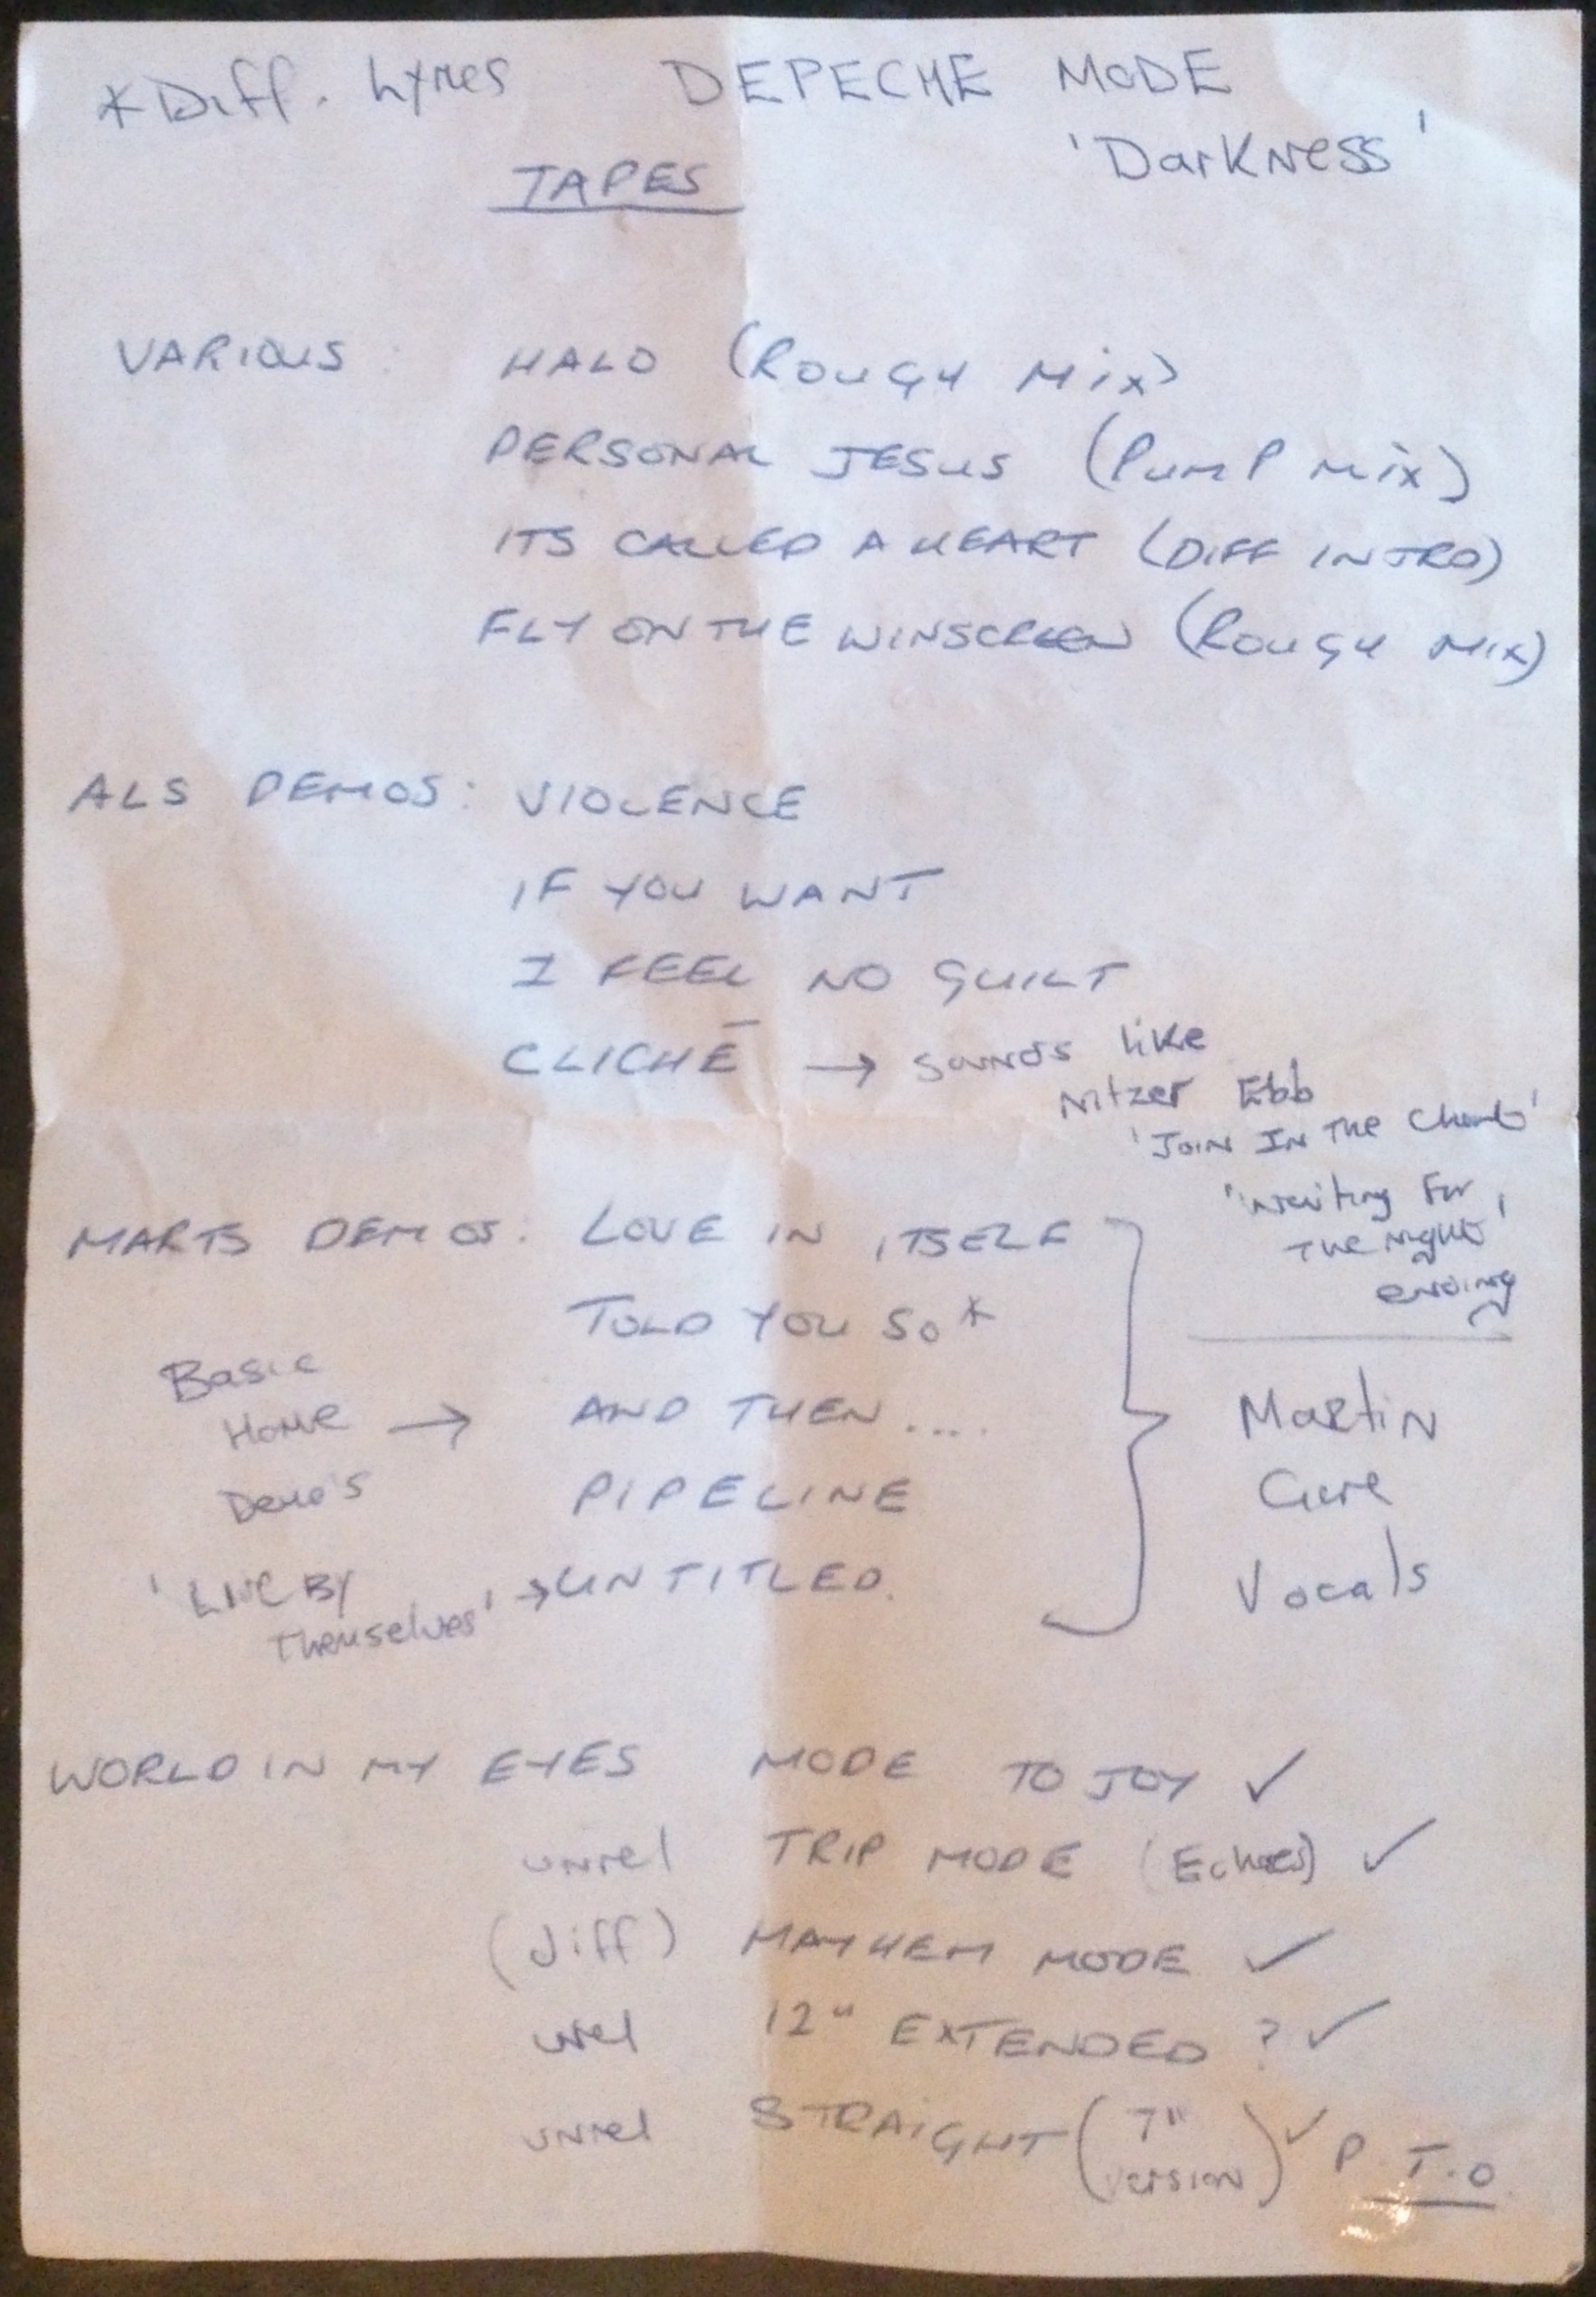 *Diff. Lyrics
DEPECHE MODE
'Darkness'
TAPES
VARIOUS : HALO (ROUGH MIX)
PERSONAL JESUS (PUMP MIX)
ITS CALLED A HEART (DIFF INTRO)
FLY ON THE WINSCREEN (ROUGH MIX)
ALS DEMOS: VIOLENCE
IF YOU WANT
I FEEL NO GUILT
CLICHÉ → sounds like
Nitzer Ebb
'Join In The Chant'
'Waiting For
The Night'
ending
MARTS DEMOS: LOVE IN ITSELF
TOLD YOU SO*
AND THEN....
PIPELINE
UNTITLED.
Basic
Home →
Demo's
'Live By
Themselves' →
Martin
Gore
Vocals
WORLD IN MY EYES MODE TO JOY ✓
unrel TRIP MODE (Echoes) ✓
(diff) MAYHEM MODE ✓
12" EXTENDED ? ✓
unrel STRAIGHT (7" version) ✓ P.T.O